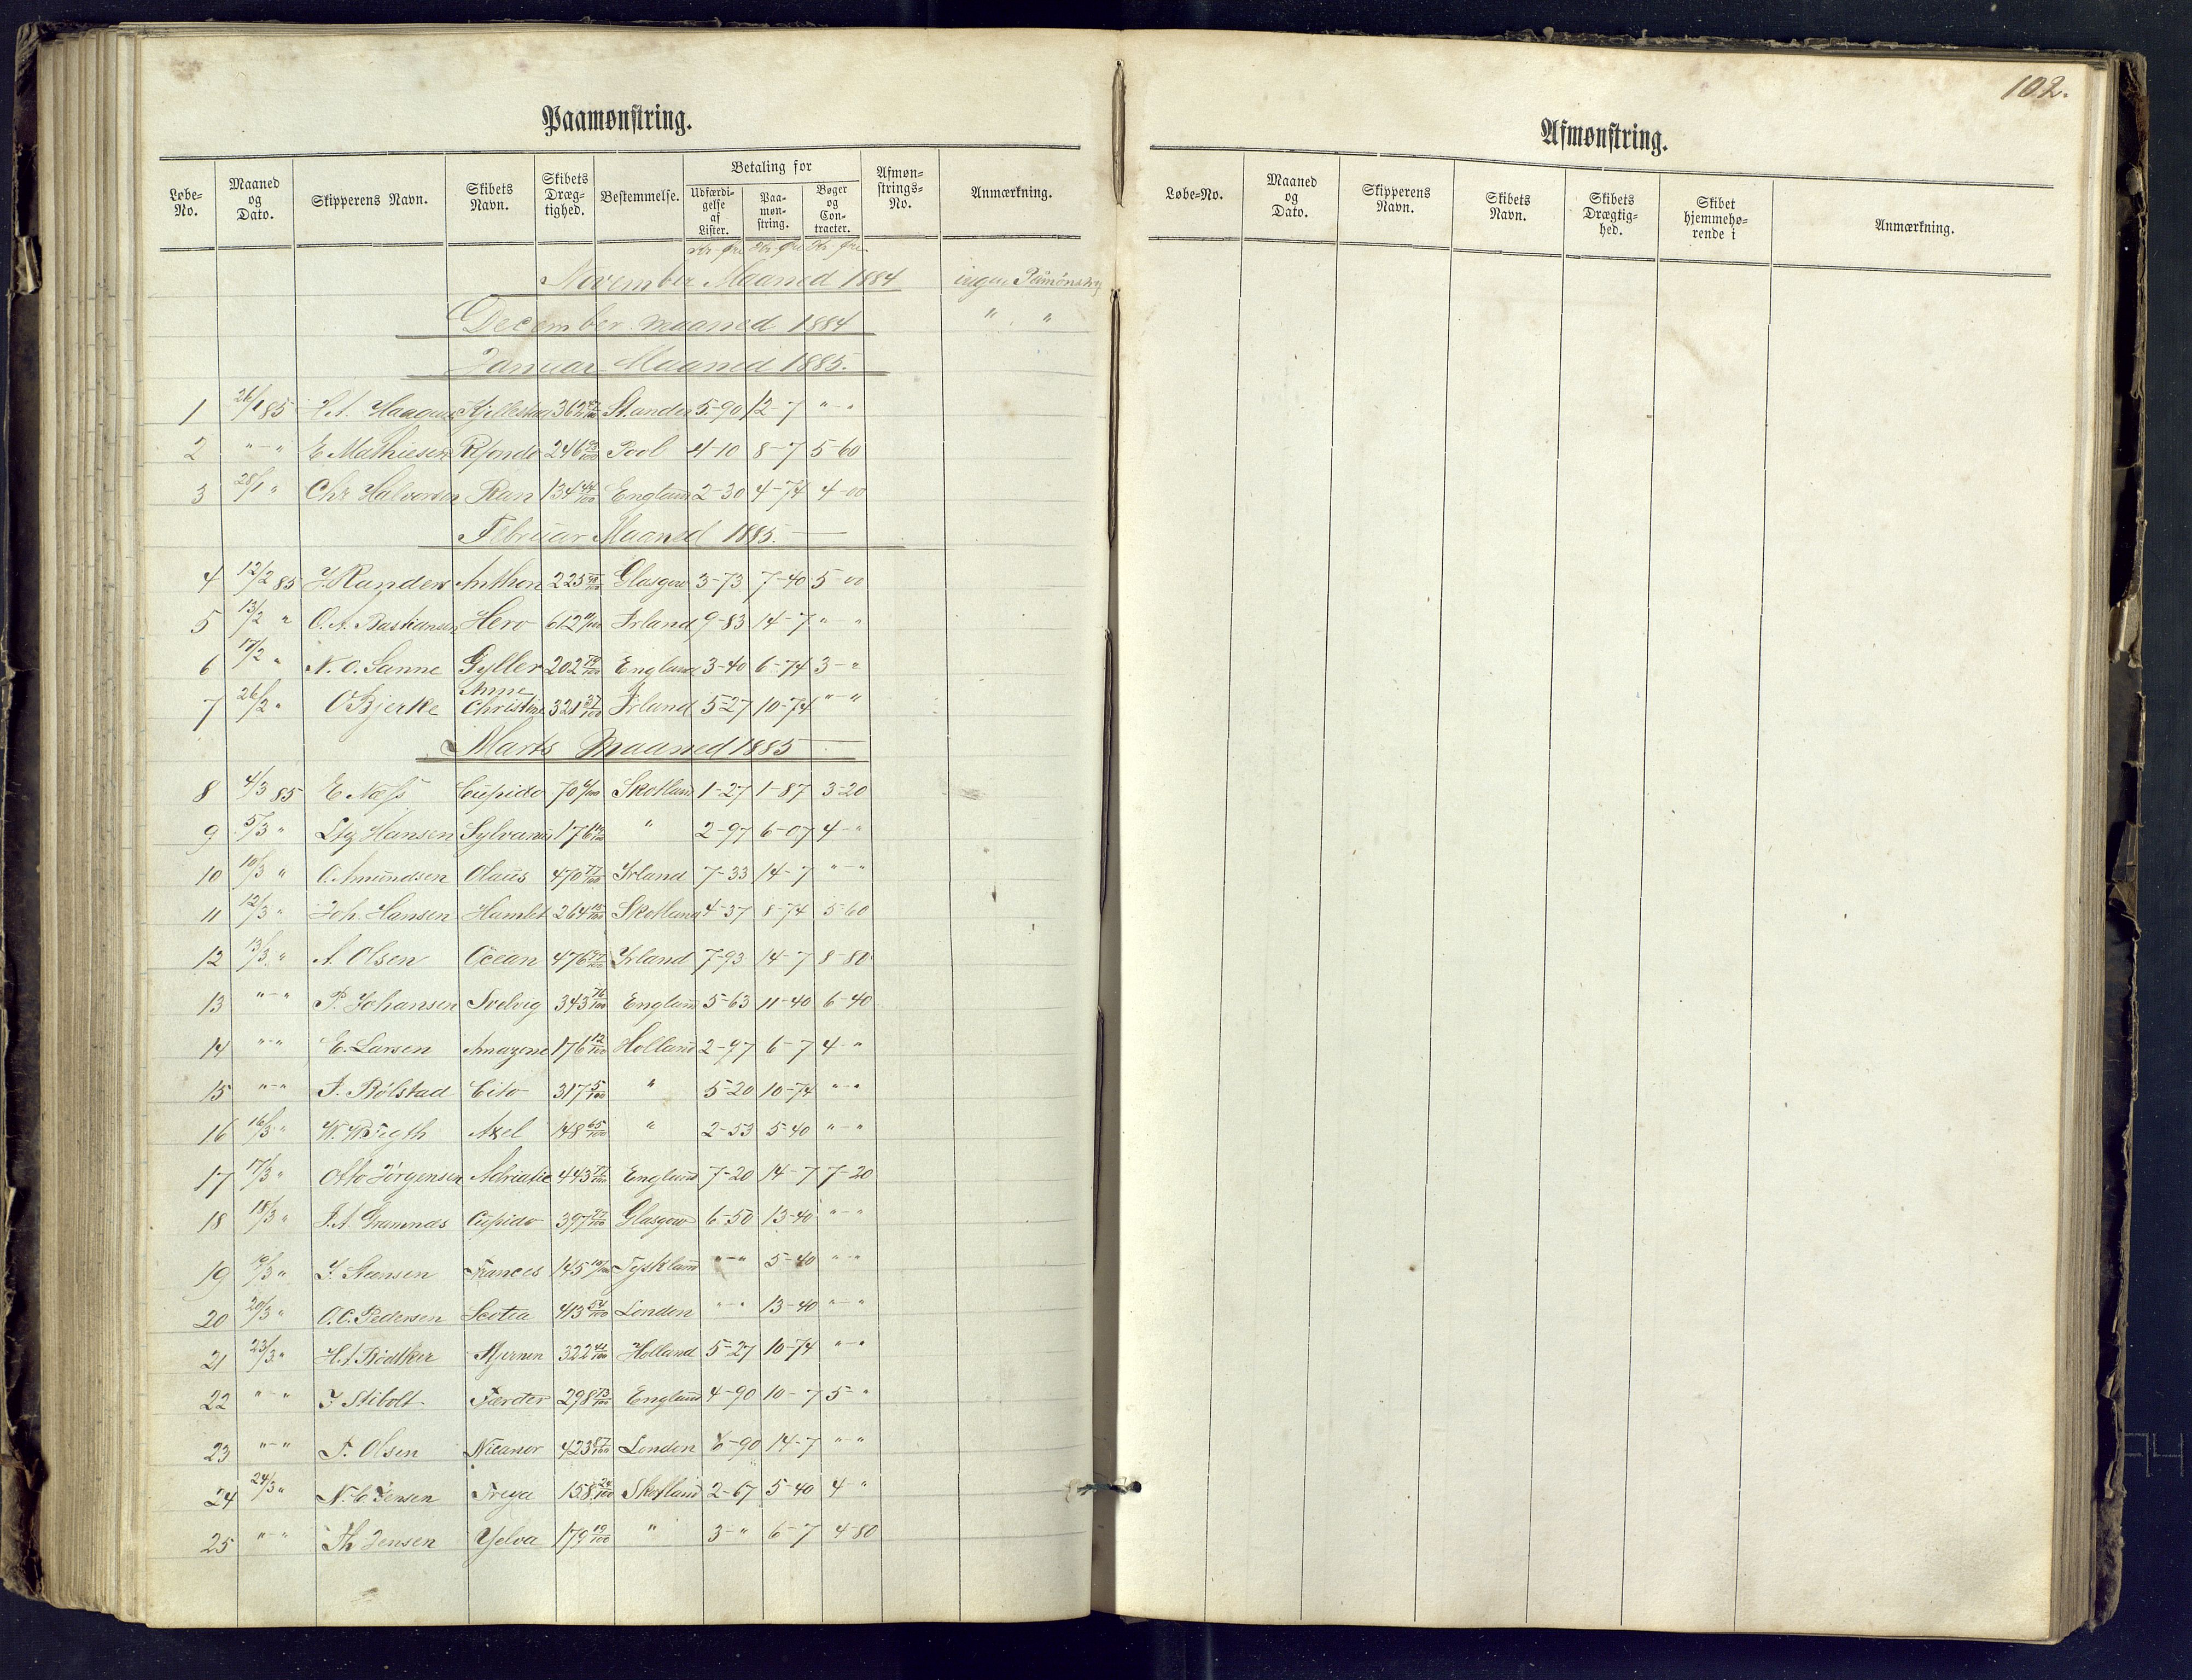 102.
Paamønstring.
Løbe-No. Maaned og Dato. Skipperens Navn. Skibets Navn. Skibets Dræg-tighed. Bestemmelse. Betaling for Udfærdi-gelse af Lister. Paa-møn-string. Bøger og Con-tracter. Afmøn-strings-No. Anmærkning.
Kr. Øre Kr. Øre Kr. Øre
November Maaned 1884 ingen Påmønstring
December maaned 1884 " "
Januar Maaned 1885.
1 26/1 85 H.A. 362 St.ander 5-90 12-7 " - "
2 " - " E Mathiesen 246 Pool 4-10 8-7 5-60
3 28/1 " Chr Halvorsen Ran 134 44/100 England 2-30 4-74 4-00
Februar Maaned 1885.
4 12/2 85 J. Randers Anthon 225 Glasgow 3-73 7-40 5-00
5 13/2 " O.A. Bastiansen Hero 612 Irland 9-83 14-7 " - "
6 17/2 " N.O. Sanne Gyller 202 England 3-40 6-74 3-"
7 26/2 " O Bjerke Anne Christine 321 37/100 Irland 5-27 10-74 " - "
Marts Maaned 1885
8 4/3 85 E Næss Cupido 70 Skotland 1-27 1-87 3-20
9 5/3 " Hansen Sylvanus 176 " 2-97 6-07 4-"
10 10/3 " O. Amundsen Olaus 470 77/100 Irland 7-33 14-7 " - "
11 12/3 " Joh. Hansen Hamlet 264 Skotland 4-37 8-74 5-60
12 13/3 " A. Olsen Ocean 476 Irland 7-93 14-7 8-80
13 " - " P. Johansen Svelvig 343 76/100 England 5-63 11-40 6-40
14 " - " E. Larsen Amazone 176 12/100 Holland 2-97 6-7 4-"
15 " - " Bölstad Cito 317 5/100 " 5-20 10-74 " - "
16 16/3 " W. Axel 148 65/100 " 2-53 5-40 " - "
17 17/3 " Otto Jörgensen Adriatic 443 77/100 England 7-20 14-7 7-20
18 18/3 " Cupido 397 Glasgow 6-50 13-40 " - "
19 19/3 " J. Steensen Frances 145 Tyskland " - " 5-40 " - "
20 20/3 " O.C. Pedersen Scotia 413 54/100 London " - " 13-40 " - "
21 23/3 " H.A. Bödtker Stjernen 322 41/100 Holland 5-27 10-74 " - "
22 " - " J Stibolt Færder 298 73/100 England 4-90 10-7 5-"
23 " - " Olsen Nicanor 423 87/100 London 6-90 14-7 " - "
24 24/3 " N.C. Jensen Freya 158 Skotland 2-67 5-40 4-"
25 " - " Th Jensen Yelva 179 19/100 " 3-" 6-7 4-80
Afmønstring.
Løbe-No. Maaned og Dato. Skipperens Navn. Skibets Navn. Skibets Drægtig-hed. Skibet hjemmehø-rende i Anmærkning.